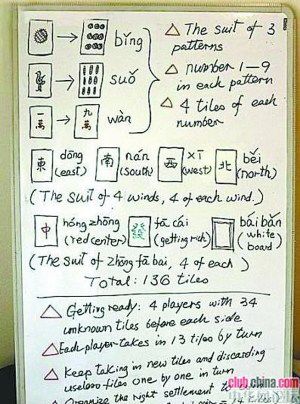 → bǐng
△ The suit of 3 patterns
suǒ
△ number 1-9 in each pattern
一萬 → 九萬 wàn
△ 4 tiles of each number
東 dōng (east) 南 nán (south) 西 xī (west) 北 běi (north)
(The suit of 4 winds, 4 of each wind.)
中 hóng zhōng (red center) 發 fā cái (getting rich) bái bǎn (white board)
(The suit of zhōng fā bái, 4 of each)
Total: 136 tiles
△ Getting ready: 4 players with 34
unknown tiles before each side
△ Each player takes in 13 tiles by turn
△ Keep taking in new tiles and discarding
useless tiles one by one in turn
Organize the right settlement
club.china.com